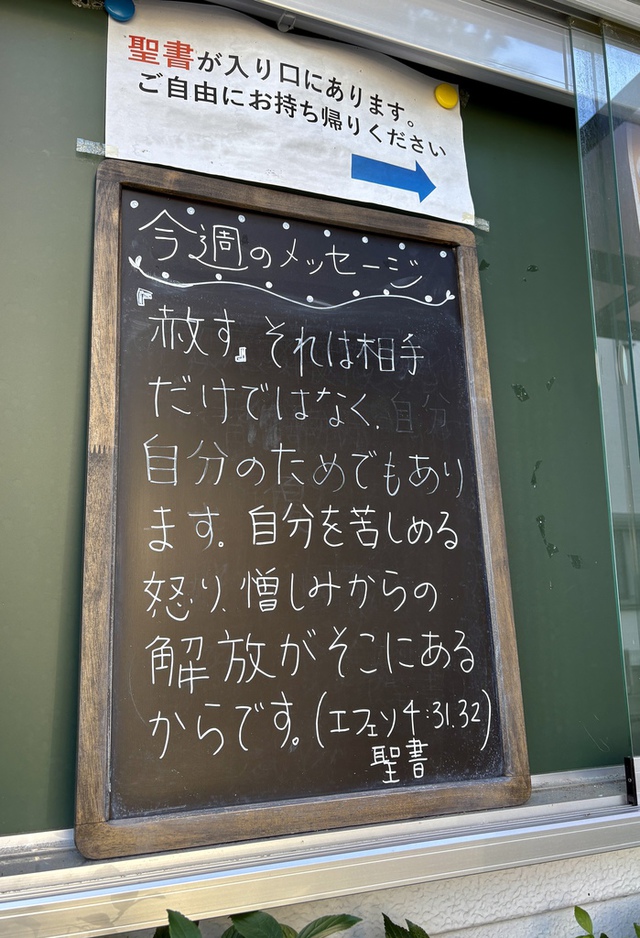 聖書が入り口にあります。
ご自由にお持ち帰りください
今週のメッセージ
『赦す』それは相手
だけではなく、自分
自分のためでもあり
ます。自分を苦しめる
怒り、憎しみからの
解放がそこにある
からです。(エフェソ4:31.32)
聖書